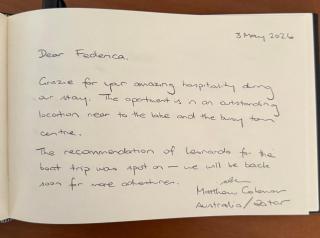 3 May 2026
Dear Federica.
Grazie for your amazing hospitality during
our stay. The apartment is in an outstanding
location near to the lake and the busy town
centre.
The recommendation of Leonardo for the
boat trip was spot on — we will be back
soon for more adventures.
Matthew
Australia/Qatar